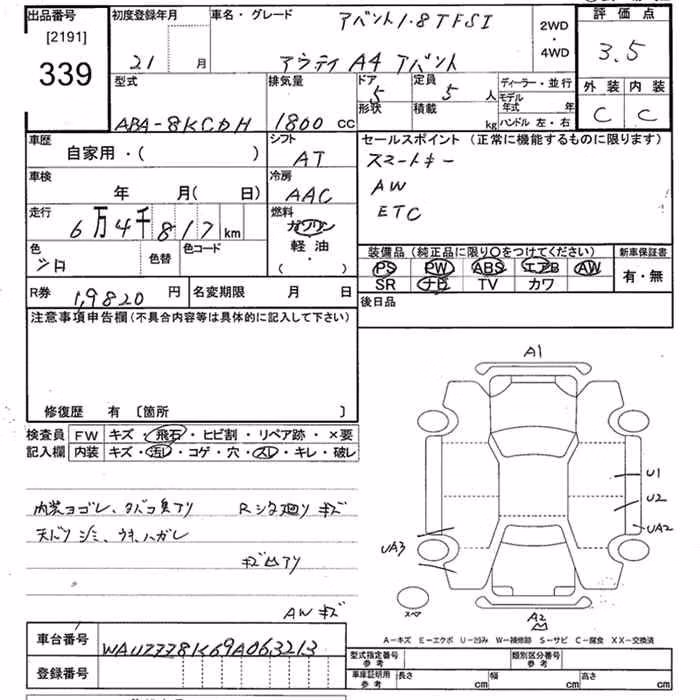 出品番号
[2191]
339
初度登録年月
21 月
車名・グレード
アバント1.8TFSI
アウディ A4 アバント
2WD
・
4WD
評価点
3.5
外装 内装
C C
型式
ABA-8KCDH
排気量
1800 cc
ドア
5
形状
定員
5 人
積載
kg
ディーラー・並行
モデル年式 年
ハンドル 左・右
車歴
自家用・( )
シフト
AT
セールスポイント (正常に機能するものに限ります)
スマートキー
AW
ETC
車検
年 月( 日)
冷房
AAC
走行
6万4千817 km
燃料
ガソリン
軽油
・
( )
色
シロ
色替
色コード
装備品 (純正品に限り○をつけてください)
PS PW ABS エアB AW
SR ナビ TV カワ
新車保証書
有・無
R券
19820 円
名変期限 月 日
後日品
注意事項申告欄(不具合内容等は具体的に記入して下さい)
修復歴 有 〔箇所 〕
検査員
記入欄
FW キズ・飛石・ヒビ割・リペア跡・×要
内装 キズ・汚レ・コゲ・穴・スレ・キレ・破レ
内装ヨゴレ、タバコ臭アリ Rシタ廻リ キズ
天バリ シミ、ウキ、ハガレ
キズ凹アリ
AW キズ
A1
U1
U2
UA2
UA3
スペア
A2
A-キズ E-エクボ U-凹み W-補修跡 S-サビ C-腐食 XX-交換済
車台番号
WAUZZZ8K69A063213
登録番号
型式指定番号
参考
類別区分番号
参考
車庫証明用
参考
長さ cm
幅 cm
高さ cm